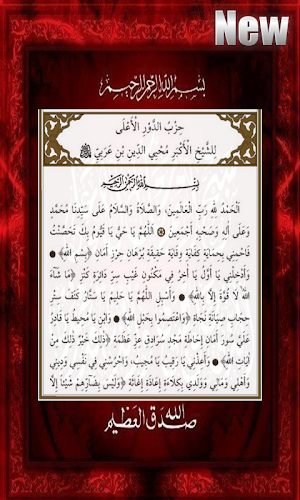 New
بسم الله الرحمن الرحيم
حِزْبُ الدَّوْرِ الْأَعْلَى
لِلشَّيْخِ الْأَكْبَرِ مُحْيِي الدِّينِ بْنِ عَرَبِي
بسم الله الرحمن الرحيم
الْحَمْدُ لِلَّهِ رَبِّ الْعَالَمِينَ، وَالصَّلَاةُ وَالسَّلَامُ عَلَى سَيِّدِنَا مُحَمَّدٍ
وَعَلَى آلِهِ وَصَحْبِهِ أَجْمَعِينَ ۞ اللَّهُمَّ يَا حَيُّ يَا قَيُّومُ بِكَ تَحَصَّنْتُ
فَاحْمِنِي بِحِمَايَةِ كِفَايَةِ وِقَايَةِ حَقِيقَةِ بُرْهَانِ حِرْزِ أَمَانِ ﴿بِسْمِ اللَّهِ﴾ ۞
وَأَدْخِلْنِي يَا أَوَّلُ يَا آخِرُ فِي مَكْنُونِ غَيْبِ سِرِّ دَائِرَةِ كَنْزِ ﴿مَا شَاءَ
اللَّهُ لَا قُوَّةَ إِلَّا بِاللَّهِ﴾ ۞ وَأَسْبِلِ اللَّهُمَّ يَا حَلِيمُ يَا سَتَّارُ كَنَفَ سِتْرِ
حِجَابِ صِيَانَةِ نَجَاةِ ﴿وَاعْتَصِمُوا بِحَبْلِ اللَّهِ﴾ ۞ وَابْنِ يَا مُحِيطُ يَا قَادِرُ
عَلَيَّ سُورَ أَمَانِ إِحَاطَةِ مَجْدِ سُرَادِقِ عِزِّ عَظَمَةِ ﴿ذَلِكَ خَيْرٌ ذَلِكَ مِنْ
آيَاتِ اللَّهِ﴾ ۞ وَأَعِذْنِي يَا رَقِيبُ يَا مُجِيبُ، وَاحْرُسْنِي فِي نَفْسِي وَدِينِي
وَأَهْلِي وَمَالِي وَوَلَدِي بِكِلَاءَةِ إِعَاذَةِ إِغَاثَةِ ﴿وَلَيْسَ بِضَارِّهِمْ شَيْئًا إِلَّا
صدق الله العظيم